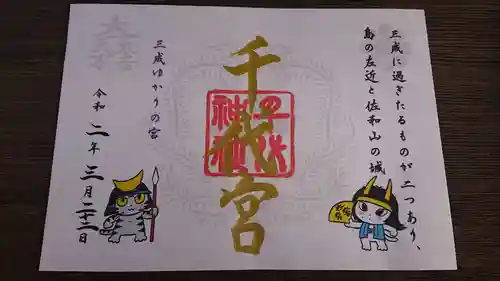 三成に過ぎたるものが二つあり、
島の左近と佐和山の城
千代宮
千代神社
三成ゆかりの宮
令和二年三月二十二日